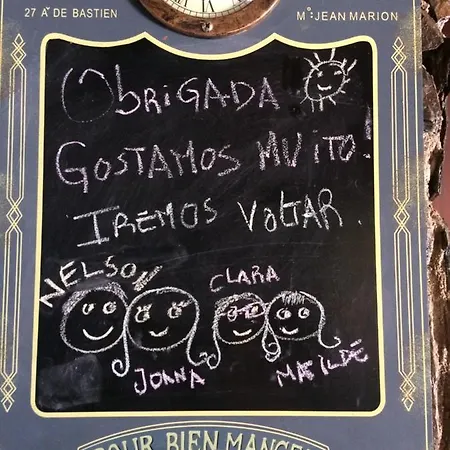 27 Aᵛ DE BASTIEN
Mᵒⁿ JEAN MARION
OBRIGADA
GOSTAMOS MUITO!
IREMOS VOLTAR.
NELSON
CLARA
JOANA
MATILDE
POUR BIEN MANGER